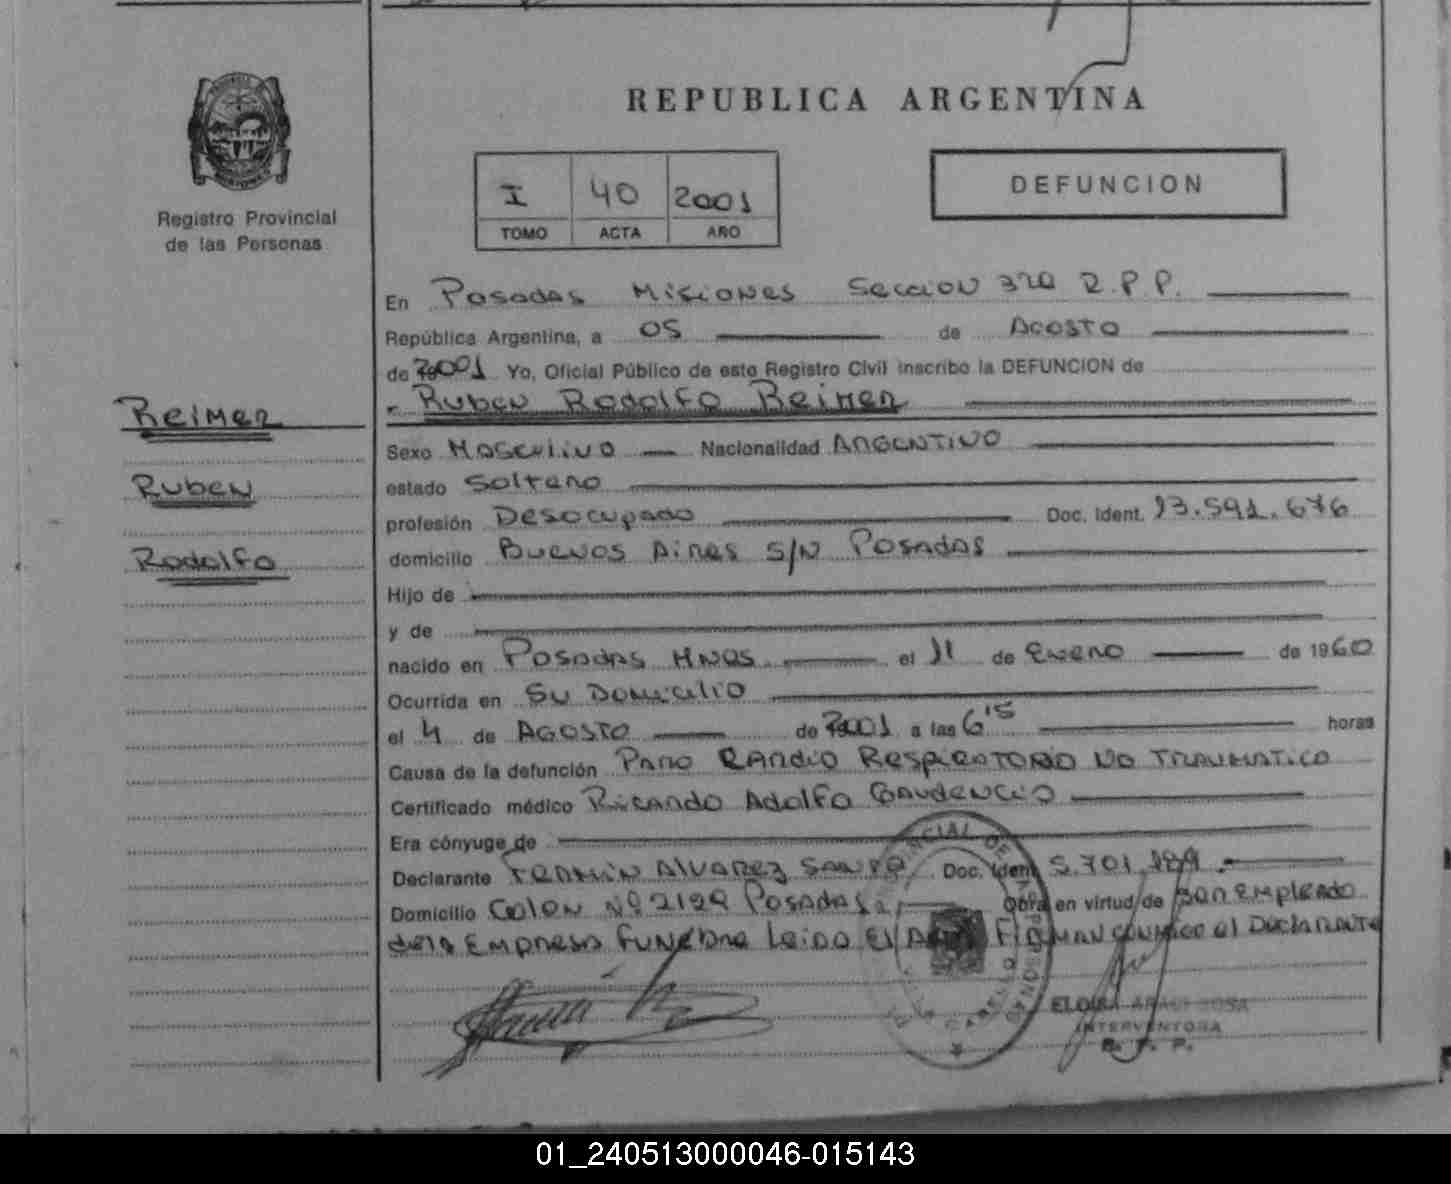 REPUBLICA ARGENTINA
I 40 2001
TOMO ACTA AÑO
DEFUNCION
Registro Provincial
de las Personas
En Posadas Misiones Seccion 3ra R.P.P.
República Argentina, a 05 de Agosto
de 2001 Yo, Oficial Público de este Registro Civil inscribo la DEFUNCION de
Ruben Rodolfo Reimer
Reimer
Ruben
Rodolfo
Sexo Masculino Nacionalidad Argentino
estado Soltero
profesión Desocupado Doc. Ident. 13.591.676
domicilio Buenos Aires S/N Posadas
Hijo de
y de
nacido en Posadas Mnes el 11 de Enero de 1960
Ocurrida en Su Domicilio
el 4 de Agosto de 2001 a las 6'15 horas
Causa de la defunción Paro Cardio Respiratorio No Traumatico
Certificado médico Ricardo Adolfo Gaudencio
Era cónyuge de
Declarante Fermin Alvarez Doc. Ident. 5.701.189
Domicilio Colon Nº 2129 Posadas Obra en virtud de ser empleado
de la Empresa Funebre Leida El Acta Firman conmigo el Declarante
INTERVENTORA
R. P. P.
01_240513000046-015143